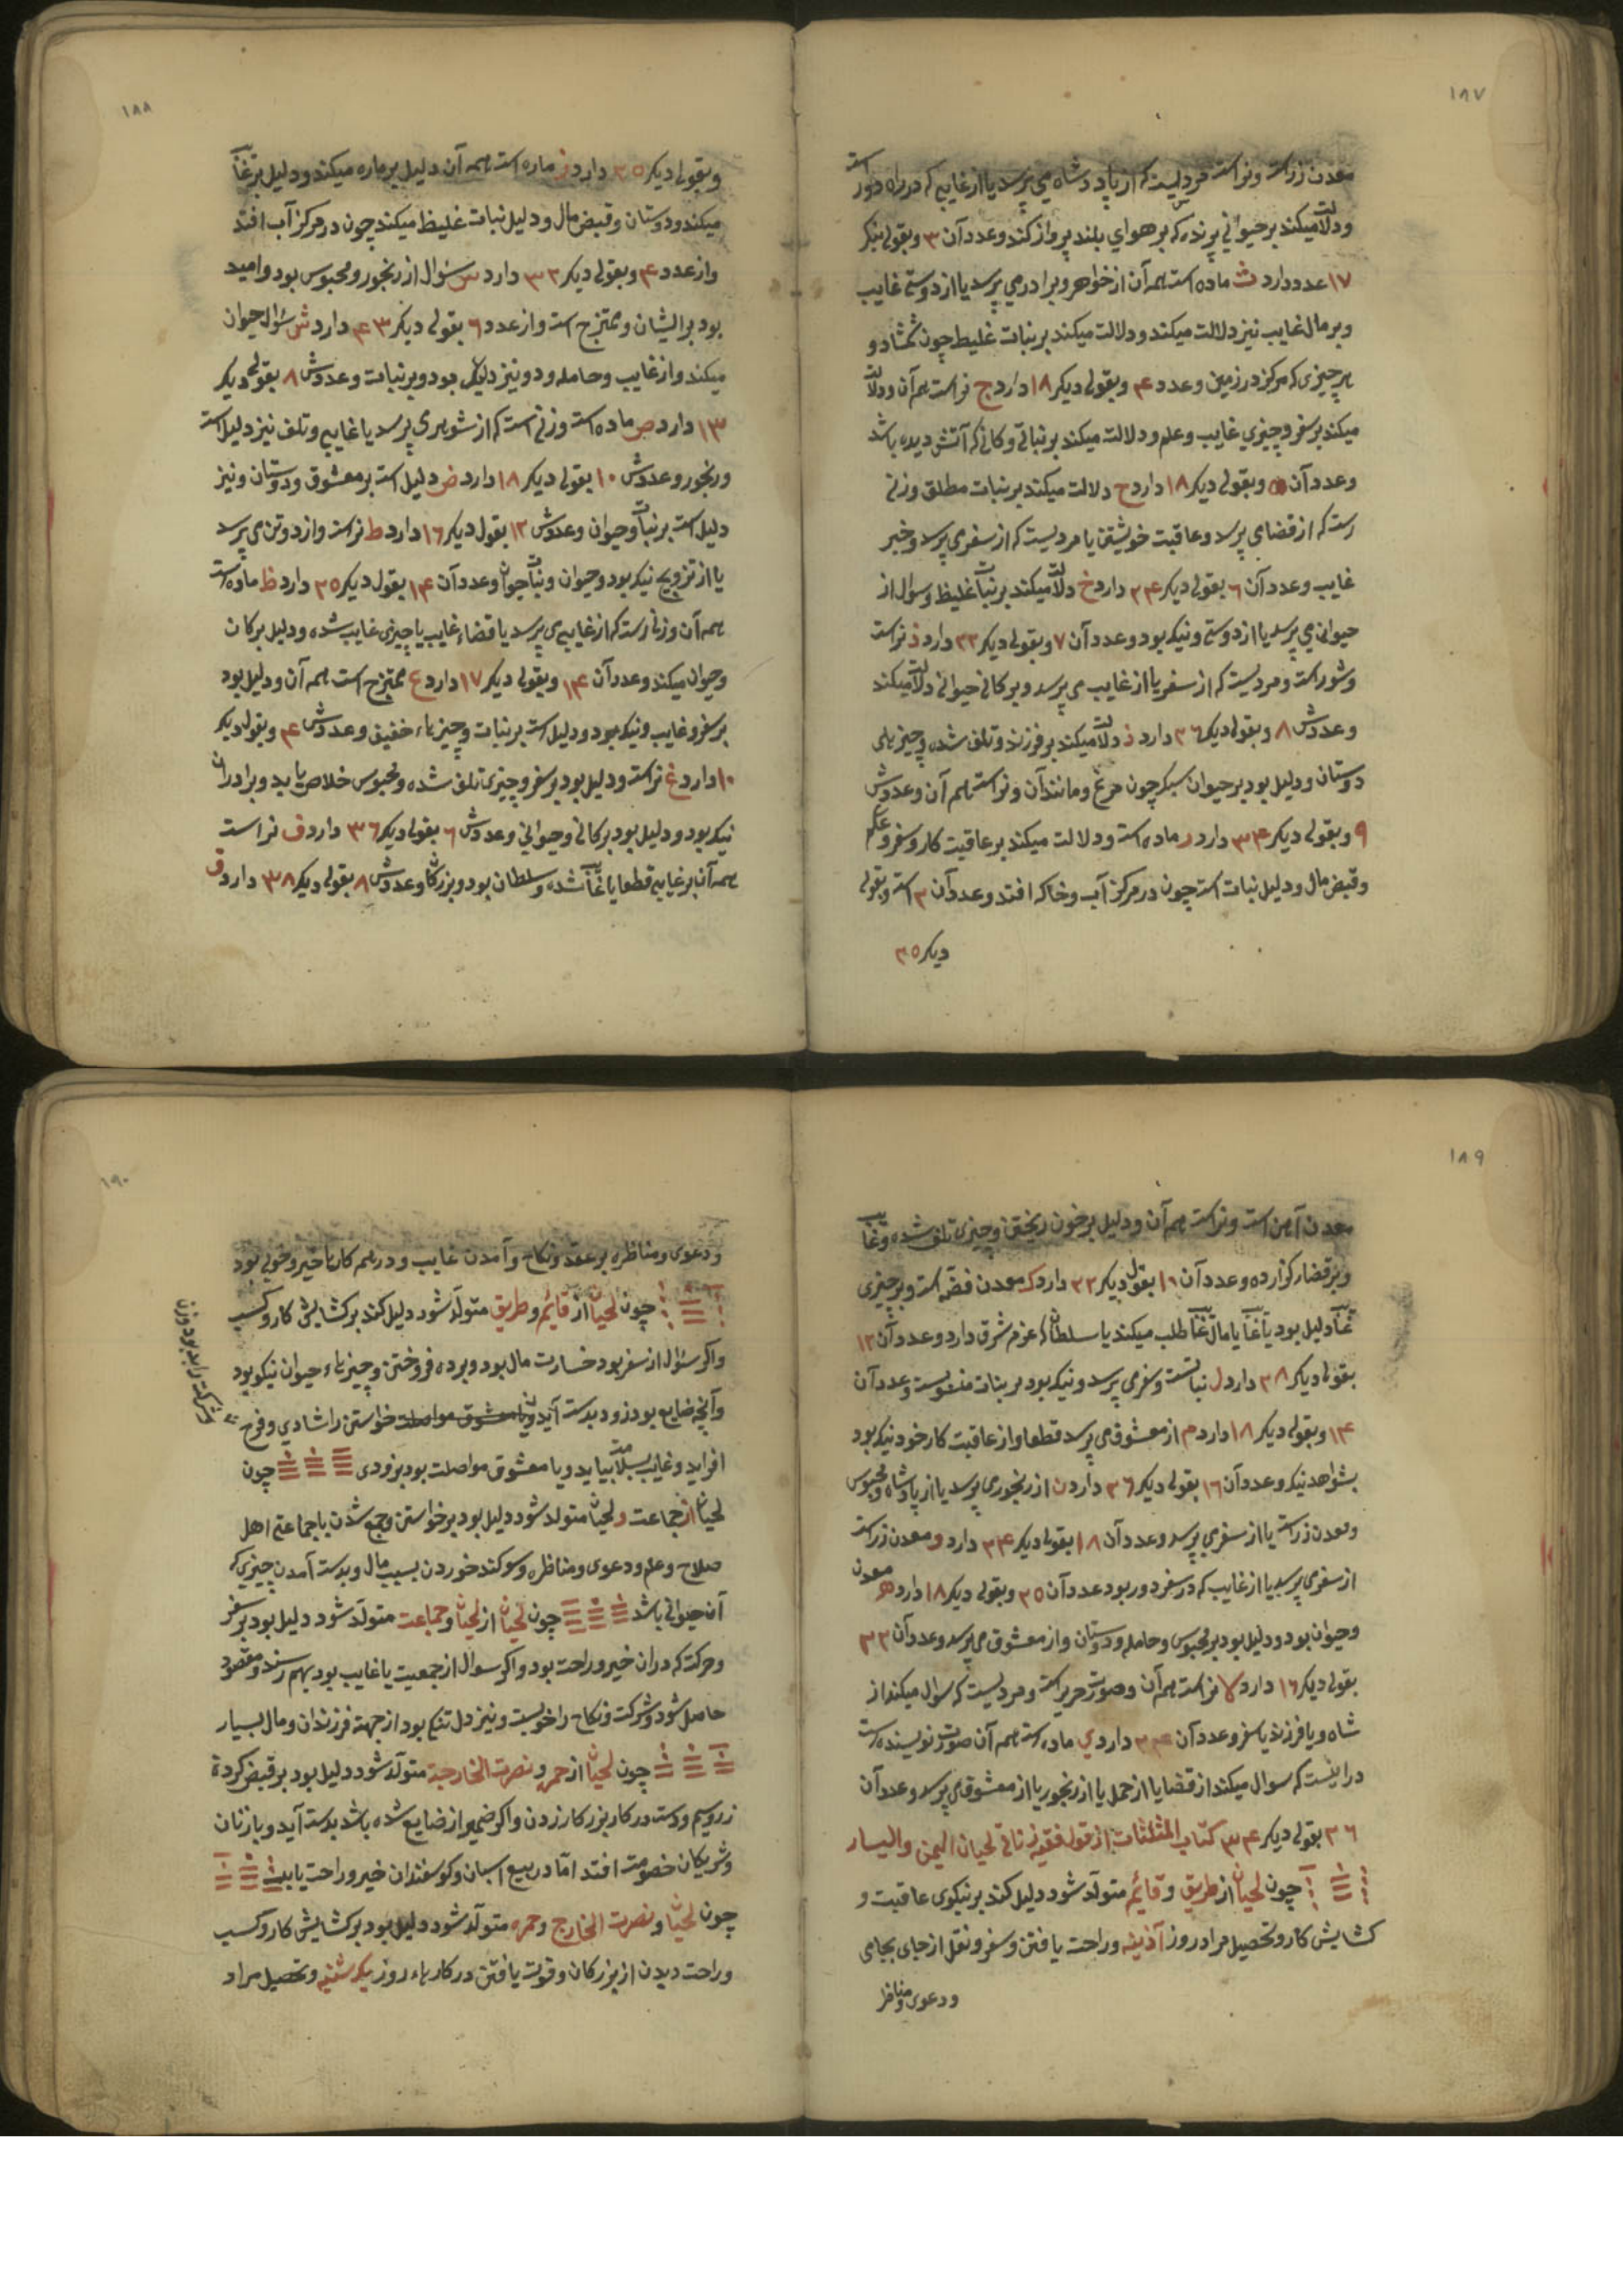 ١٨٧
معدن زرست و نراست مردیست که از پادشاه می پرسد یا از غایبی که در راه دور است
ودلالت میکند بر حیوانی پرنده که بر هوای بلند پرواز کند وعدد آن ٣ وبقولی دیکر
١٧ عدد دارد ث ماده است همه آن از خواهر وبرادر می پرسد یا از دوستی غایب
وبر مال غایب نیز دلالت میکند ودلالت میکند بر نبات غلیط چون شمشاد و
هر چیزی که مرکز در زمین وعدد ۴ وبقولی دیکر ١٨ دارد ج نراست همه آن ودلالت
میکند بر سفر وچیزی غایب وعلم ودلالت میکند بر نباتی وکانی که آتش دیده باشد
وعدد آن ۵ وبقولی دیکر ١٨ دارد ح دلالت میکند بر نبات مطلق وزنی
است که از قضا می پرسد وعاقبت خویشتن یا مردیست که از سفر می پرسد وخبر
غایب وعدد آن ٦ بقولی دیکر ٢۴ دارد خ دلالت میکند بر نبات غلیظ وسوال از
حیوانی می پرسد یا از دوستی ونیک بود وعدد آن ٧ وبقولی دیکر ٢٢ دارد د نراست
وشوراست ومردیست که از سفر یا از غایب می پرسد وبر کانی حیوانی دلالت میکند
وعددش ٨ وبقولی دیکر ٢٦ دارد ذ دلالت میکند بر فرزند وتلف شده وچیزهای
دوستان ودلیل بود بر حیوان سبک چون مرغ ومانند آن ونراست همه آن وعددش
٩ وبقولی دیکر ٣۴ دارد ر ماده است ودلالت میکند بر عاقبت کار وسفر وعلم
وقبض مال ودلیل نبات است چون در مرکز آب وخاک افتد وعدد آن ٢ است وبقولی
دیکر ٢۵
١٨٨
وبقولی دیکر ٢۵ دارد ز ماده است همه آن دلیل بر ماده میکند ودلیل بر غایب
میکند ودوستان وقبض مال ودلیل نبات غلیظ میکند چون در مرکز آب افتد
واز عدد ۴ وبقولی دیکر ٣٢ دارد س سؤال از رنجور ومحبوس بود وامید
بود برایشان وممتزج است واز عدد ٦ بقولی دیکر ۴٣ دارد ش سؤال حیوان
میکند واز غایب وحامله ودو نیز دلیل بود وبر نبات وعددش ٨ بقولی دیکر
١٣ دارد ص ماده است وزنی است که از شوهری پرسد یا غایبی وتلف نیز دلیل است
ورنجور وعددش ١٠ بقولی دیکر ١٨ دارد ض دلیل است بر معشوق ودوستان ونیز
دلیل است بر نبات وحیوان وعددش ١٢ بقول دیکر ١٦ دارد ط نراست واز دو تن می پرسد
یا از تزویج نیک بود وحیوان ونبات وعدد آن ١۴ بقول دیکر ٢۵ دارد ظ ماده است
همه آن وزنی است که از غایبی می پرسد یا قضاء غایب یا چیزی غایب شده ودلیل بر کان
وحیوان میکند وعدد آن ١۴ وبقولی دیکر ١٧ دارد ع ممتزج است همه آن ودلیل بود
بر سفر وغایب ونیک بود ودلیل است بر نبات وچیزهاء خفیف وعددش ۴ وبقولی دیکر
١٠ دارد غ نراست ودلیل بود بر سفر وچیزی تلف شده ومحبوس خلاص یابد وبرادران
نیک بود ودلیل بود بر کانی وحیوانی وعددش ٦ بقولی دیکر ٣٦ دارد ف نراست
همه آن بر غایبی قطعا یا غایب شده وسلطان بود وبزرکان وعددش ٨ بقولی دیکر ٣٨ دارد ق
١٨٩
معدن آهن است ونراست همه آن ودلیل بر خون ریختن وچیزی تلف شده وغایب
وبر قضا گزارده وعدد آن ١٠ بقول دیکر ٢٢ دارد ک معدن فضّه است وبر چیزی
غایب دلیل بود یا غایب یا مال غایب طلب میکند یا سلطان که عزم شرق دارد وعدد آن ١٢
بقولی دیکر ٢٨ دارد ل نباتیست وسفر می پرسد ونیک بود بر نبات منسوبست وعدد آن
١۴ وبقولی دیکر ١٨ دارد م از معشوق می پرسد قطعا واز عاقبت کار خود نیک بود
بشواهد نیک وعدد آن ١٦ بقولی دیکر ٢٦ دارد ن از رنجوری پرسد یا از پادشاه ومحبوس
ومعدن زراست یا از سفری پرسد وعدد آن ١٨ بقولی دیکر ٢۴ دارد و معدن زراست
از سفری پرسد یا از غایب که در سفر دور بود عدد آن ٢۵ وبقولی دیکر ١٨ دارد ه معدن
وحیوان بود ودلیل بود بر محبوس وحامله ودوستان واز معشوق می پرسد وعدد آن ٣٢
بقولی دیکر ١٦ دارد لا نراست همه آن وصورت حریر است ومردیست که سوال میکند از
شاه ویا فرزند یا سفر وعدد آن ٣۴ دارد ی ماده است همه آن صورت نویسنده است
در اینست که سوال میکند از قضا یا از حمل یا از رنجور یا از معشوق می پرسد وعدد آن
٣٦ بقولی دیکر ٣۴ کتاب المثلثات از قول فقیه زناتی لحیان الیمن والیسار
چون لحیان از طریق وقایم متولّد شود دلیل کند بر نیکوی عاقبت و
کشایش کار وتحصیل مراد روز آذینه وراحت یافتن وسفر ونقل از جای بجای
ودعوی ومناظر
١٩٠
ودعوی ومناظره بر عقد ونکاح وآمدن غایب ودر همه کارها خیر وخوبی بود
چون لحیان از قایم وطریق متولّد شود دلیل کند بر کشایش کار وکسب
واکر سؤال از سفر بود خسارت مال بود وبرده فروختن وچیزهاء حیوان نیکو بود
وآنچه ضایع بود زود بدست آید ویا معشوق مواصلت خواستن را شادی وفرح
افزاید وغایب بسلامت بیاید وبا معشوق مواصلت بود بزودی چون
لحیان از جماعت ولحیان متولد شود دلیل بود بر خواستن وجمع شدن با جماعتی اهل
صلاح وعلم ودعوی ومناظره وسوکند خوردن بسبب مال وبدست آمدن چیزی که
آن حیوانی باشد چون لحیان از لحیان وجماعت متولّد شود دلیل بود بر سفر
وحرکت که در ان خیر وراحت بود واکر سوال از جمعیت یا غایب بود بهم رسند ومقصود
حاصل شود وشرکت ونکاح را خوبست ونیز دل تنکی بود از جهة فرزندان ومال بسیار
چون لحیان از حمره ونصرت الخارجة متولّد شود دلیل بود بر قبض کردن
زر وسیم ودست در کار بزرک زدن واکر ضمیر از ضایع شده باشد بدست آید وبا زنان
وشریکان خصومت افتد امّا در بیع اسبان وکوسفندان خیر وراحت یابد
چون لحیان ونصرت الخارج وحمره متولّد شود دلیل بود بر کشایش کار وکسب
وراحت دیدن از بزرکان وقوت یافتن در کارهاء روز یکشنبه وتحصیل مراد